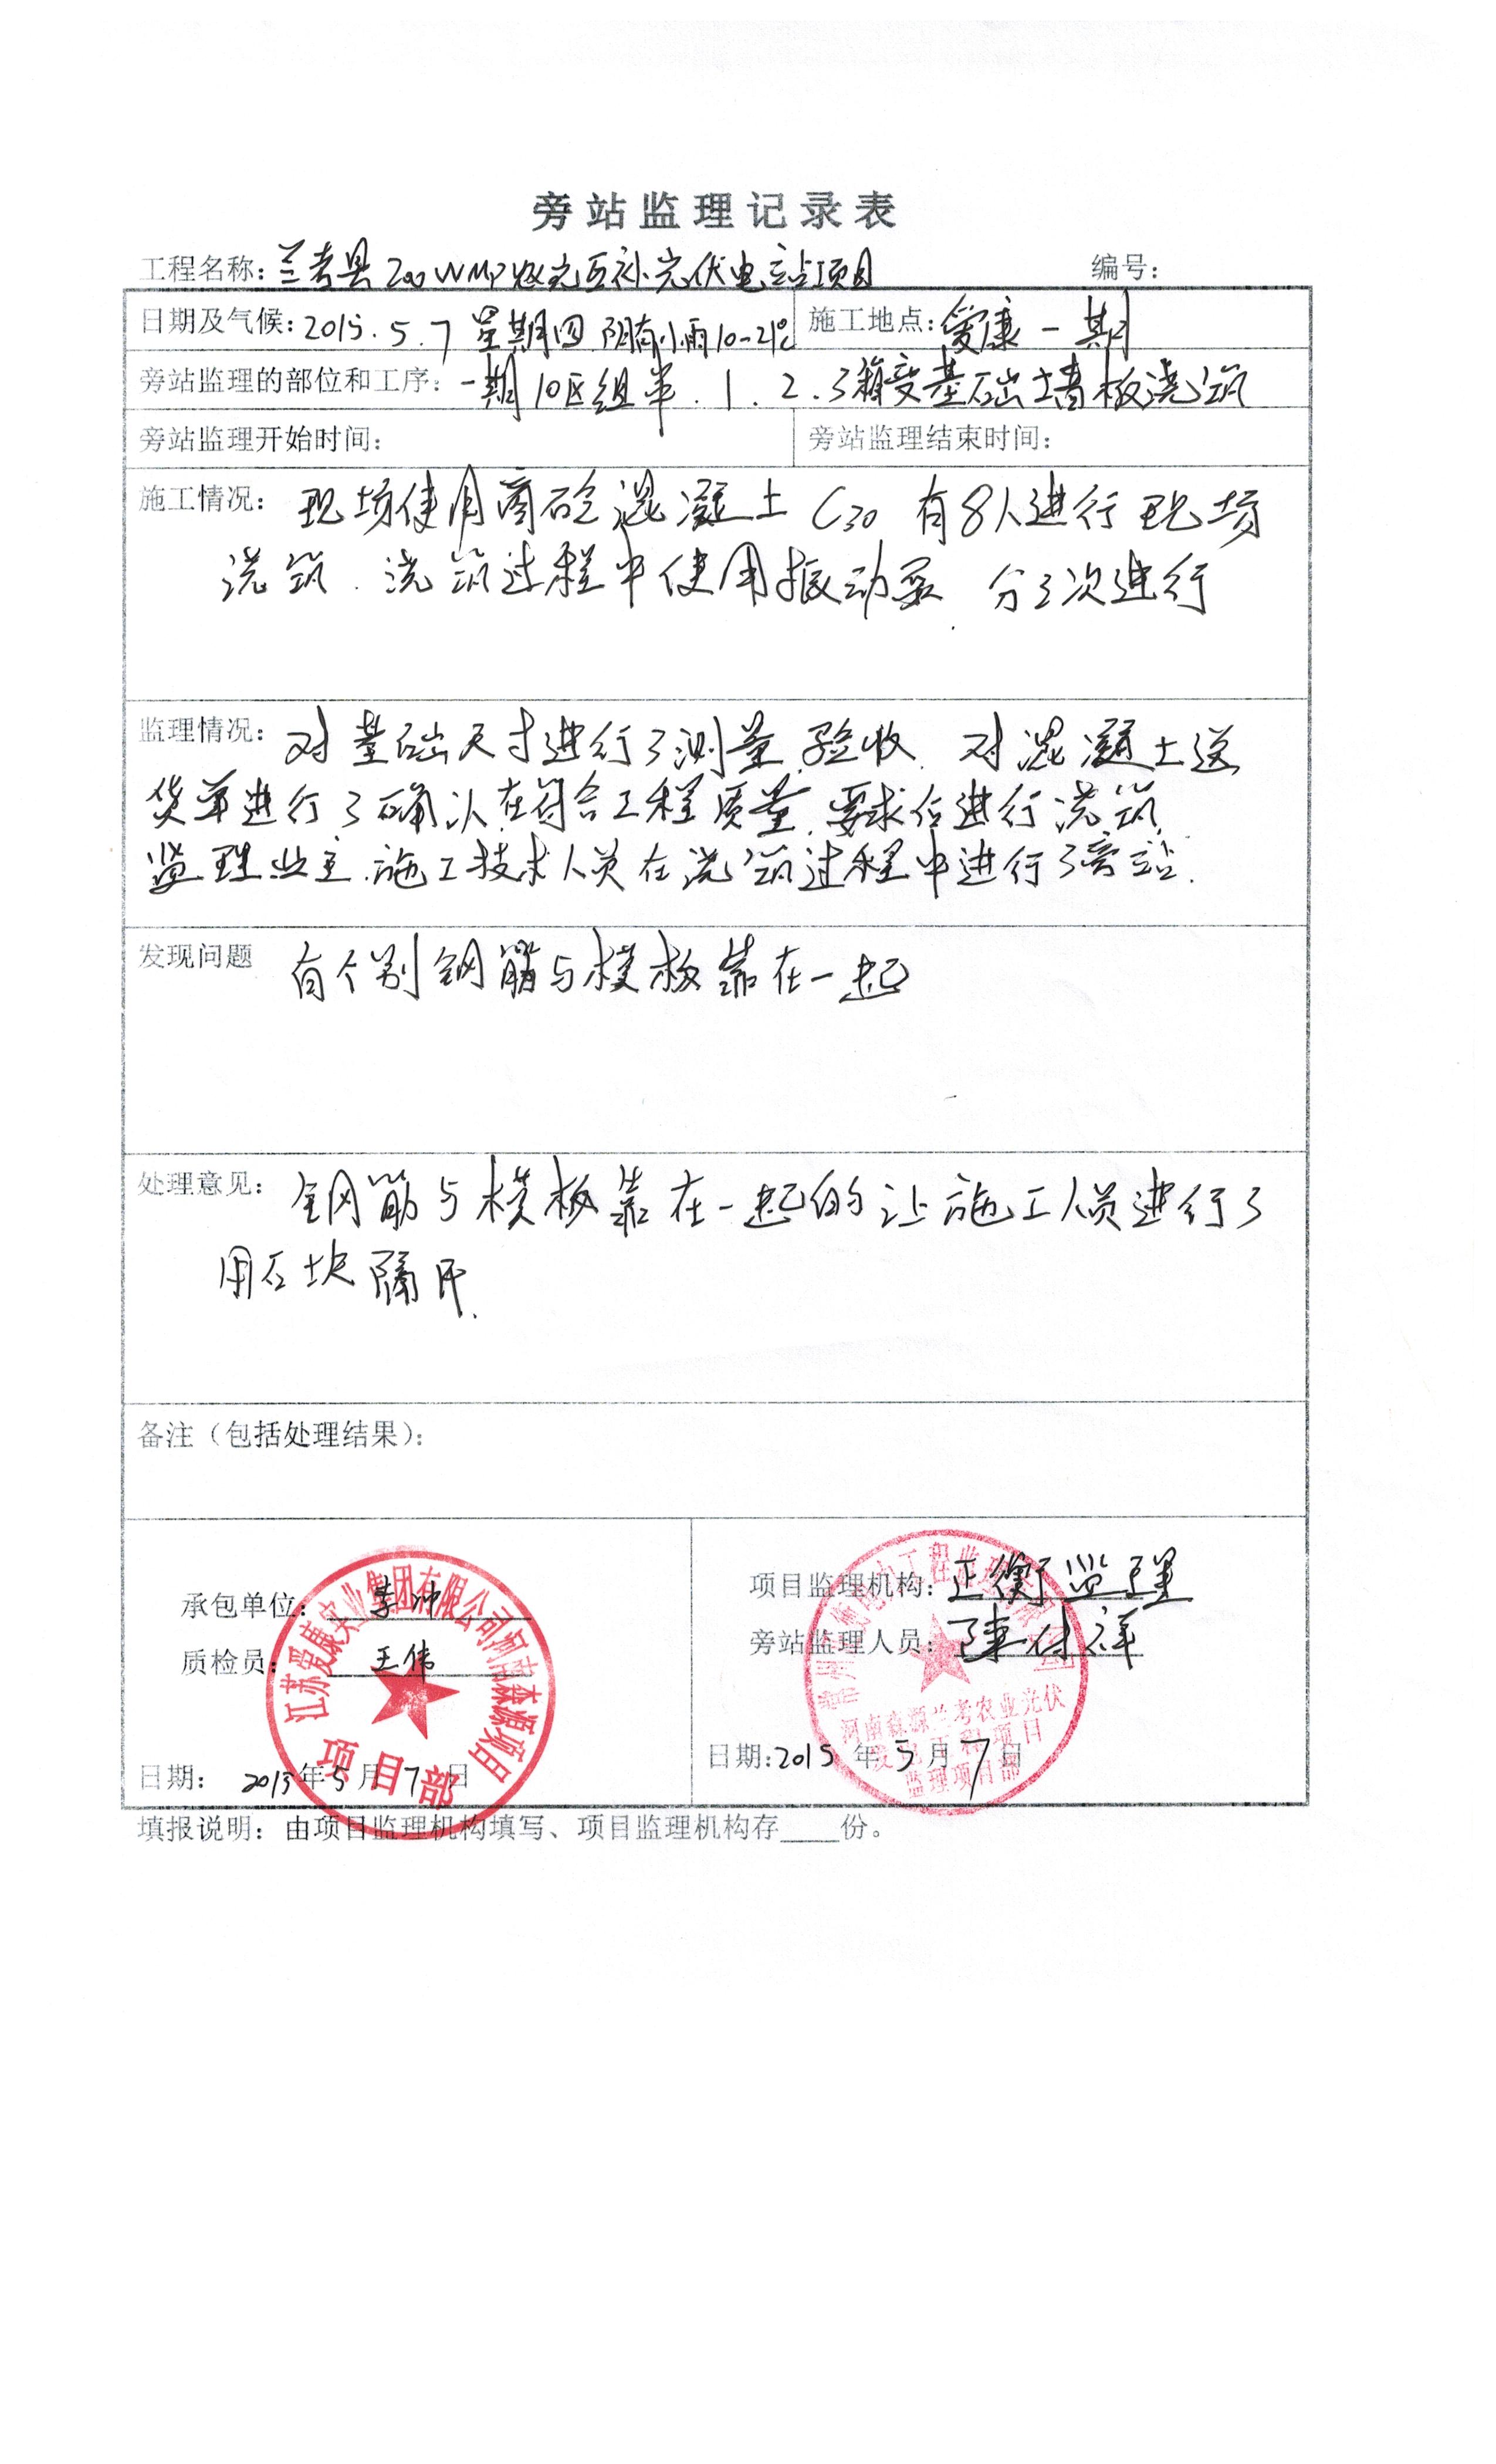 旁站监理记录表
工程名称：兰考县200WMP农光互补光伏电站项目 编号：
日期及气候：2015.5.7 星期四 阴有小雨10-21℃ 施工地点：爱康一期
旁站监理的部位和工序：一期10区组串.1.2.3箱变基础墙板浇筑
旁站监理开始时间： 旁站监理结束时间：
施工情况：现场使用商砼混凝土C30 有8人进行现场
浇筑.浇筑过程中使用振动泵 分3次进行
监理情况：对基础尺寸进行了测量.验收.对混凝土送
货单进行了确认在符合工程质量.要求后进行浇筑.
监理业主.施工技术人员在浇筑过程中进行了旁站.
发现问题 有个别钢筋与模板靠在一起
处理意见：钢筋与模板靠在一起的让施工人员进行了
用石块隔开.
备注（包括处理结果）：
承包单位：李冲
质检员：王伟
日期：2015年5月7日
江苏爱康实业集团有限公司河南森源项目
项目部
项目监理机构：正衡监理
旁站监理人员：陈付祥
日期：2015年5月7日
河南森源兰考农业光伏
监理项目部
填报说明：由项目监理机构填写、项目监理机构存____份。